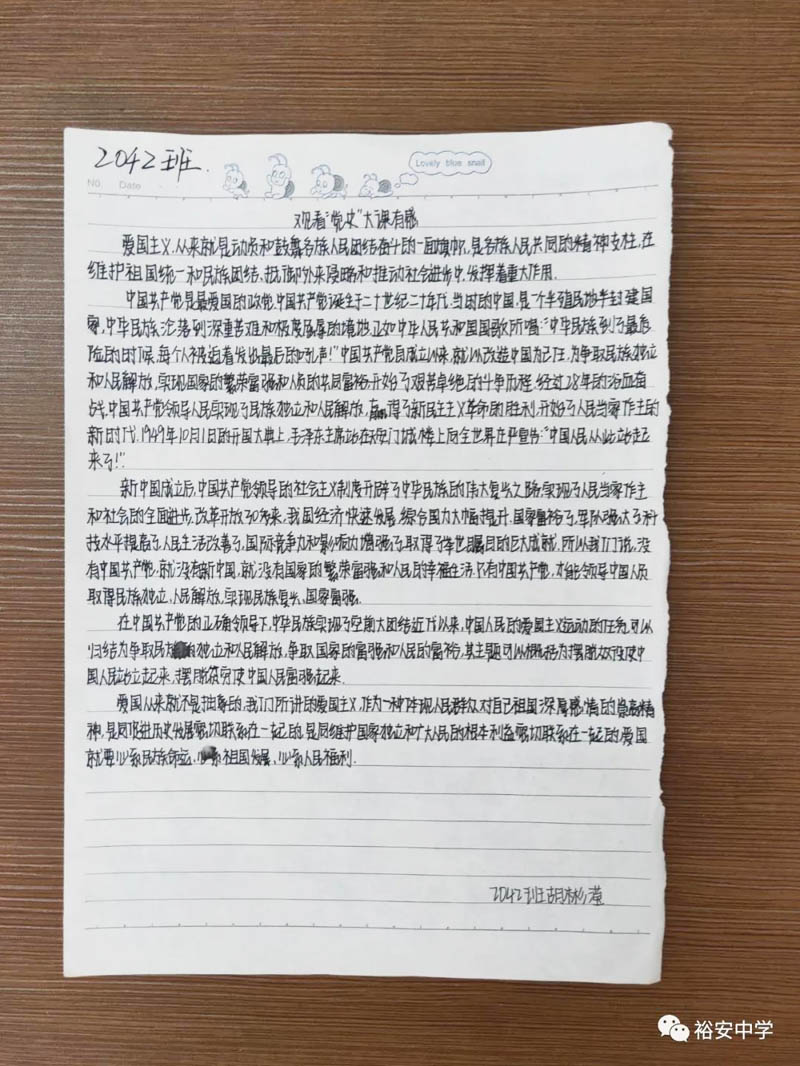 2042班.
Lovely blue snail
No. Date
观看"党史"大课有感
爱国主义,从来就是动员和鼓舞各族人民团结奋斗的一面旗帜,是各族人民共同的精神支柱,在
维护祖国统一和民族团结、抵御外来侵略和推动社会进步中,发挥着重大作用.
中国共产党是最爱国的政党.中国共产党诞生于二十世纪二十年代,当时的中国,是个半殖民地半封建国
家,中华民族沦落到深重苦难和极度屈辱的境地,正如中华人民共和国国歌所唱:"中华民族到了最危
险的时候,每个人被迫着发出最后的吼声!"中国共产党自成立以来,就以改造中国为己任,为争取民族独立
和人民解放,实现国家的繁荣富强和人民的共同富裕,开始了艰苦卓绝的斗争历程,经过28年的浴血奋
战,中国共产党领导人民实现了民族独立和人民解放,得了新民主主义革命的胜利,开始了人民当家作主的
新时代.1949年10月1日的开国大典上,毛泽东主席站在天安门城楼上向全世界庄严宣告:"中国人民从此站起
来了!".
新中国成立后,中国共产党领导的社会主义制度开辟了中华民族的伟大复兴之路,实现了人民当家作主
和社会的全面进步.改革开放30多来,我国经济快速发展,综合国力大幅提升.国家富裕了,军队强大了,科
技水平提高了,人民生活改善了,国际竞争力和影响力增强了,取得了举世瞩目的巨大成就.所以我们说,没
有中国共产党,就没有新中国,就没有国家的繁荣富强和人民的幸福生活.只有中国共产党,才能领导中国人民
取得民族独立、人民解放,实现民族复兴、国家富强.
在中国共产党的正确领导下,中华民族实现了空前大团结.近代以来,中国人民的爱国主义运动的任务,可以
归结为争取民族独立和人民解放,争取国家的富强和人民的富裕,其主题可以概括为摆脱奴役使中
国人民站立起来,摆脱贫穷使中国人民富强起来.
爱国从来就不是抽象的,我们所讲的爱国主义,作为一种体现人民群众对自己祖国深厚感情的崇高精
神,是同促进历史发展密切联系在一起的,是同维护国家独立和广大人民的根本利益密切联系在一起的.爱国
就要心系民族命运,心系祖国发展,心系人民福利.
2042班胡彬滢
裕安中学